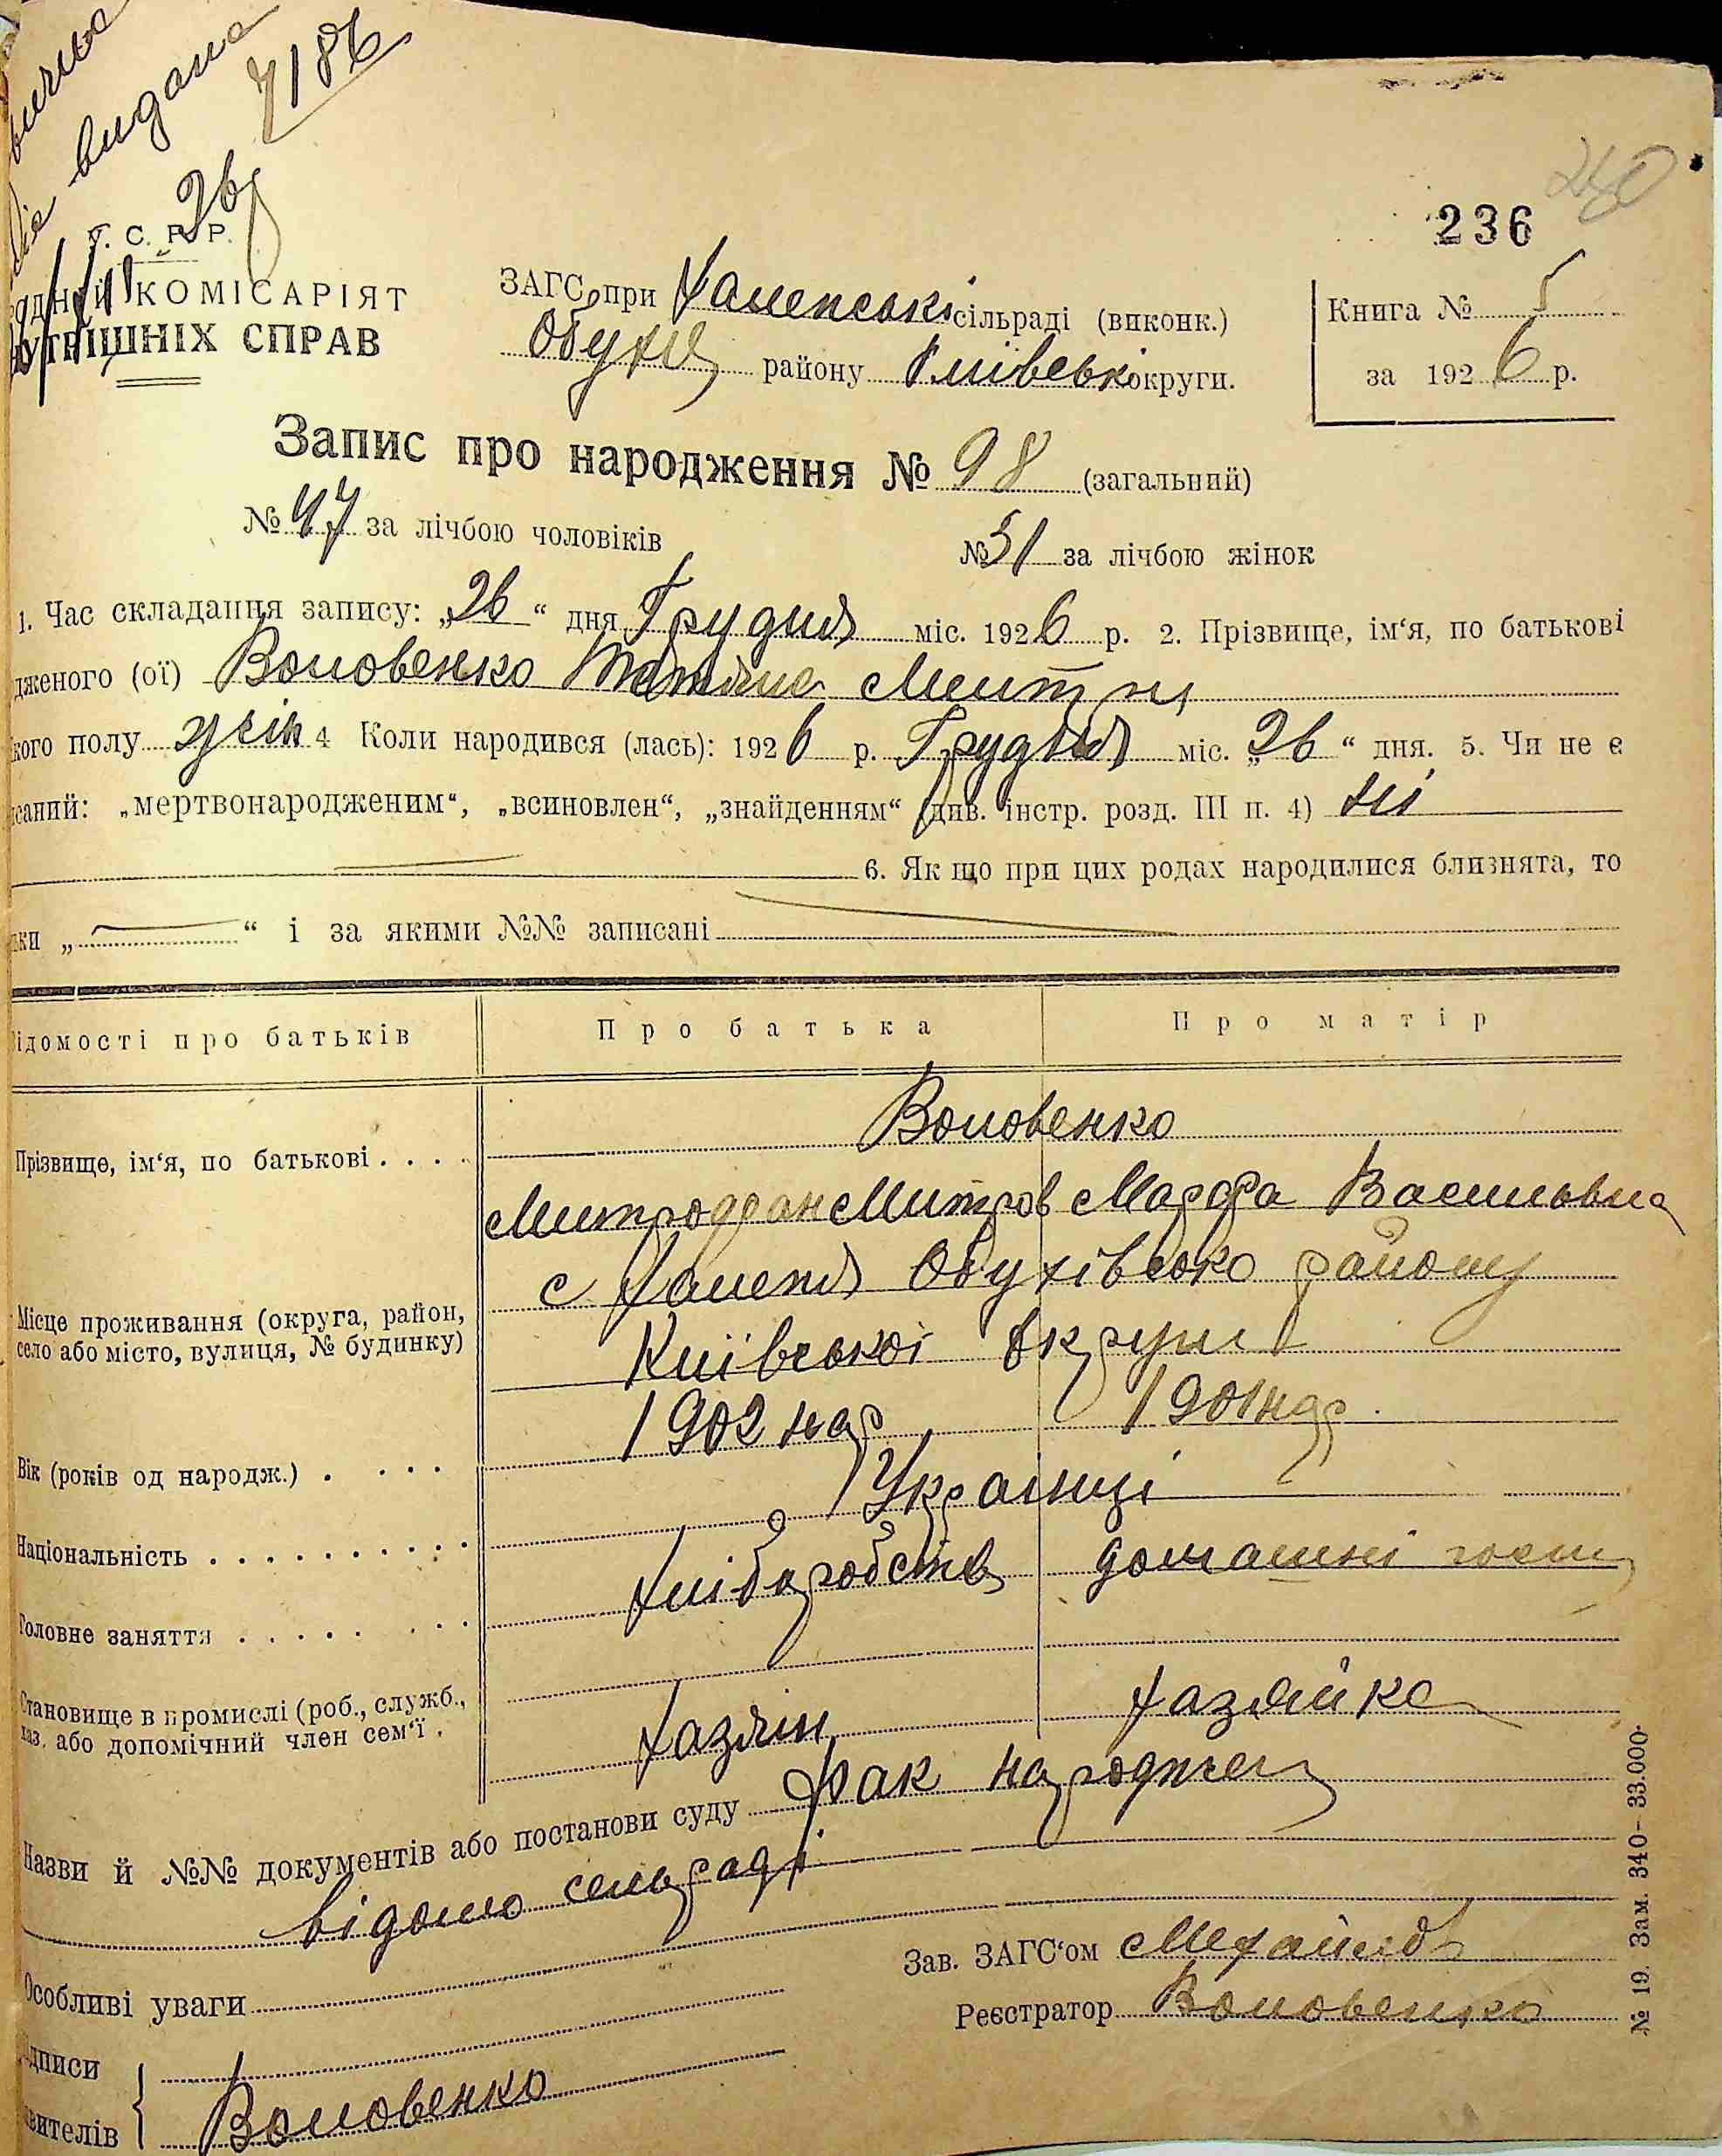 видана
7/86
26
Т. С. Р. Р.
КОМІСАРІЯТ
ВНУТРІШНІХ СПРАВ
236
240
ЗАГС при Халепські сільраді (виконк.)
Обухів району Київськ округи.
Книга № 5
за 1926 р.
Запис про народження № 98 (загальний)
№ 47 за лічбою чоловіків
№ 51 за лічбою жінок
1. Час складання запису: „26“ дня Грудня міс. 1926 р. 2. Прізвище, ім‘я, по батькові
дженого (ої) Воловенко Тетяна Митр
кого полу жін 4 Коли народився (лась): 1926 р. Грудня міс. „26“ дня. 5. Чи не є
исаний: „мертвонародженим“, „всиновлен“, „знайденням“ (див. інстр. розд. III п. 4) ні
6. Як що при цих родах народилися близнята, то
ьки „ “ і за якими №№ записані
Відомості про батьків
Про батька
Про матір
Прізвище, ім‘я, по батькові . . . .
Воловенко
Митрофан Митров Марфа Василовна
Місце проживання (округа, район,
село або місто, вулиця, № будинку)
с Халепя Обухівсько району
Київської округи
Вік (років од народж.) . . . .
1902 нар
1901 нар.
Національність . . . . . . . . . .
Українці
Головне заняття . . . . . . . .
хліборобств
домашнє госп
Становище в промислі (роб., служб.,
хаз. або допомічний член сем‘ї .
хазяїн
хазяйка
Назви й №№ документів або постанови суду Фак народжен
відомо сельраді
Особливі уваги
Зав. ЗАГС‘ом
Реєстратор Воловенко
Підписи
заявителів
Воловенко
№ 19. Зам. 340–33.000.